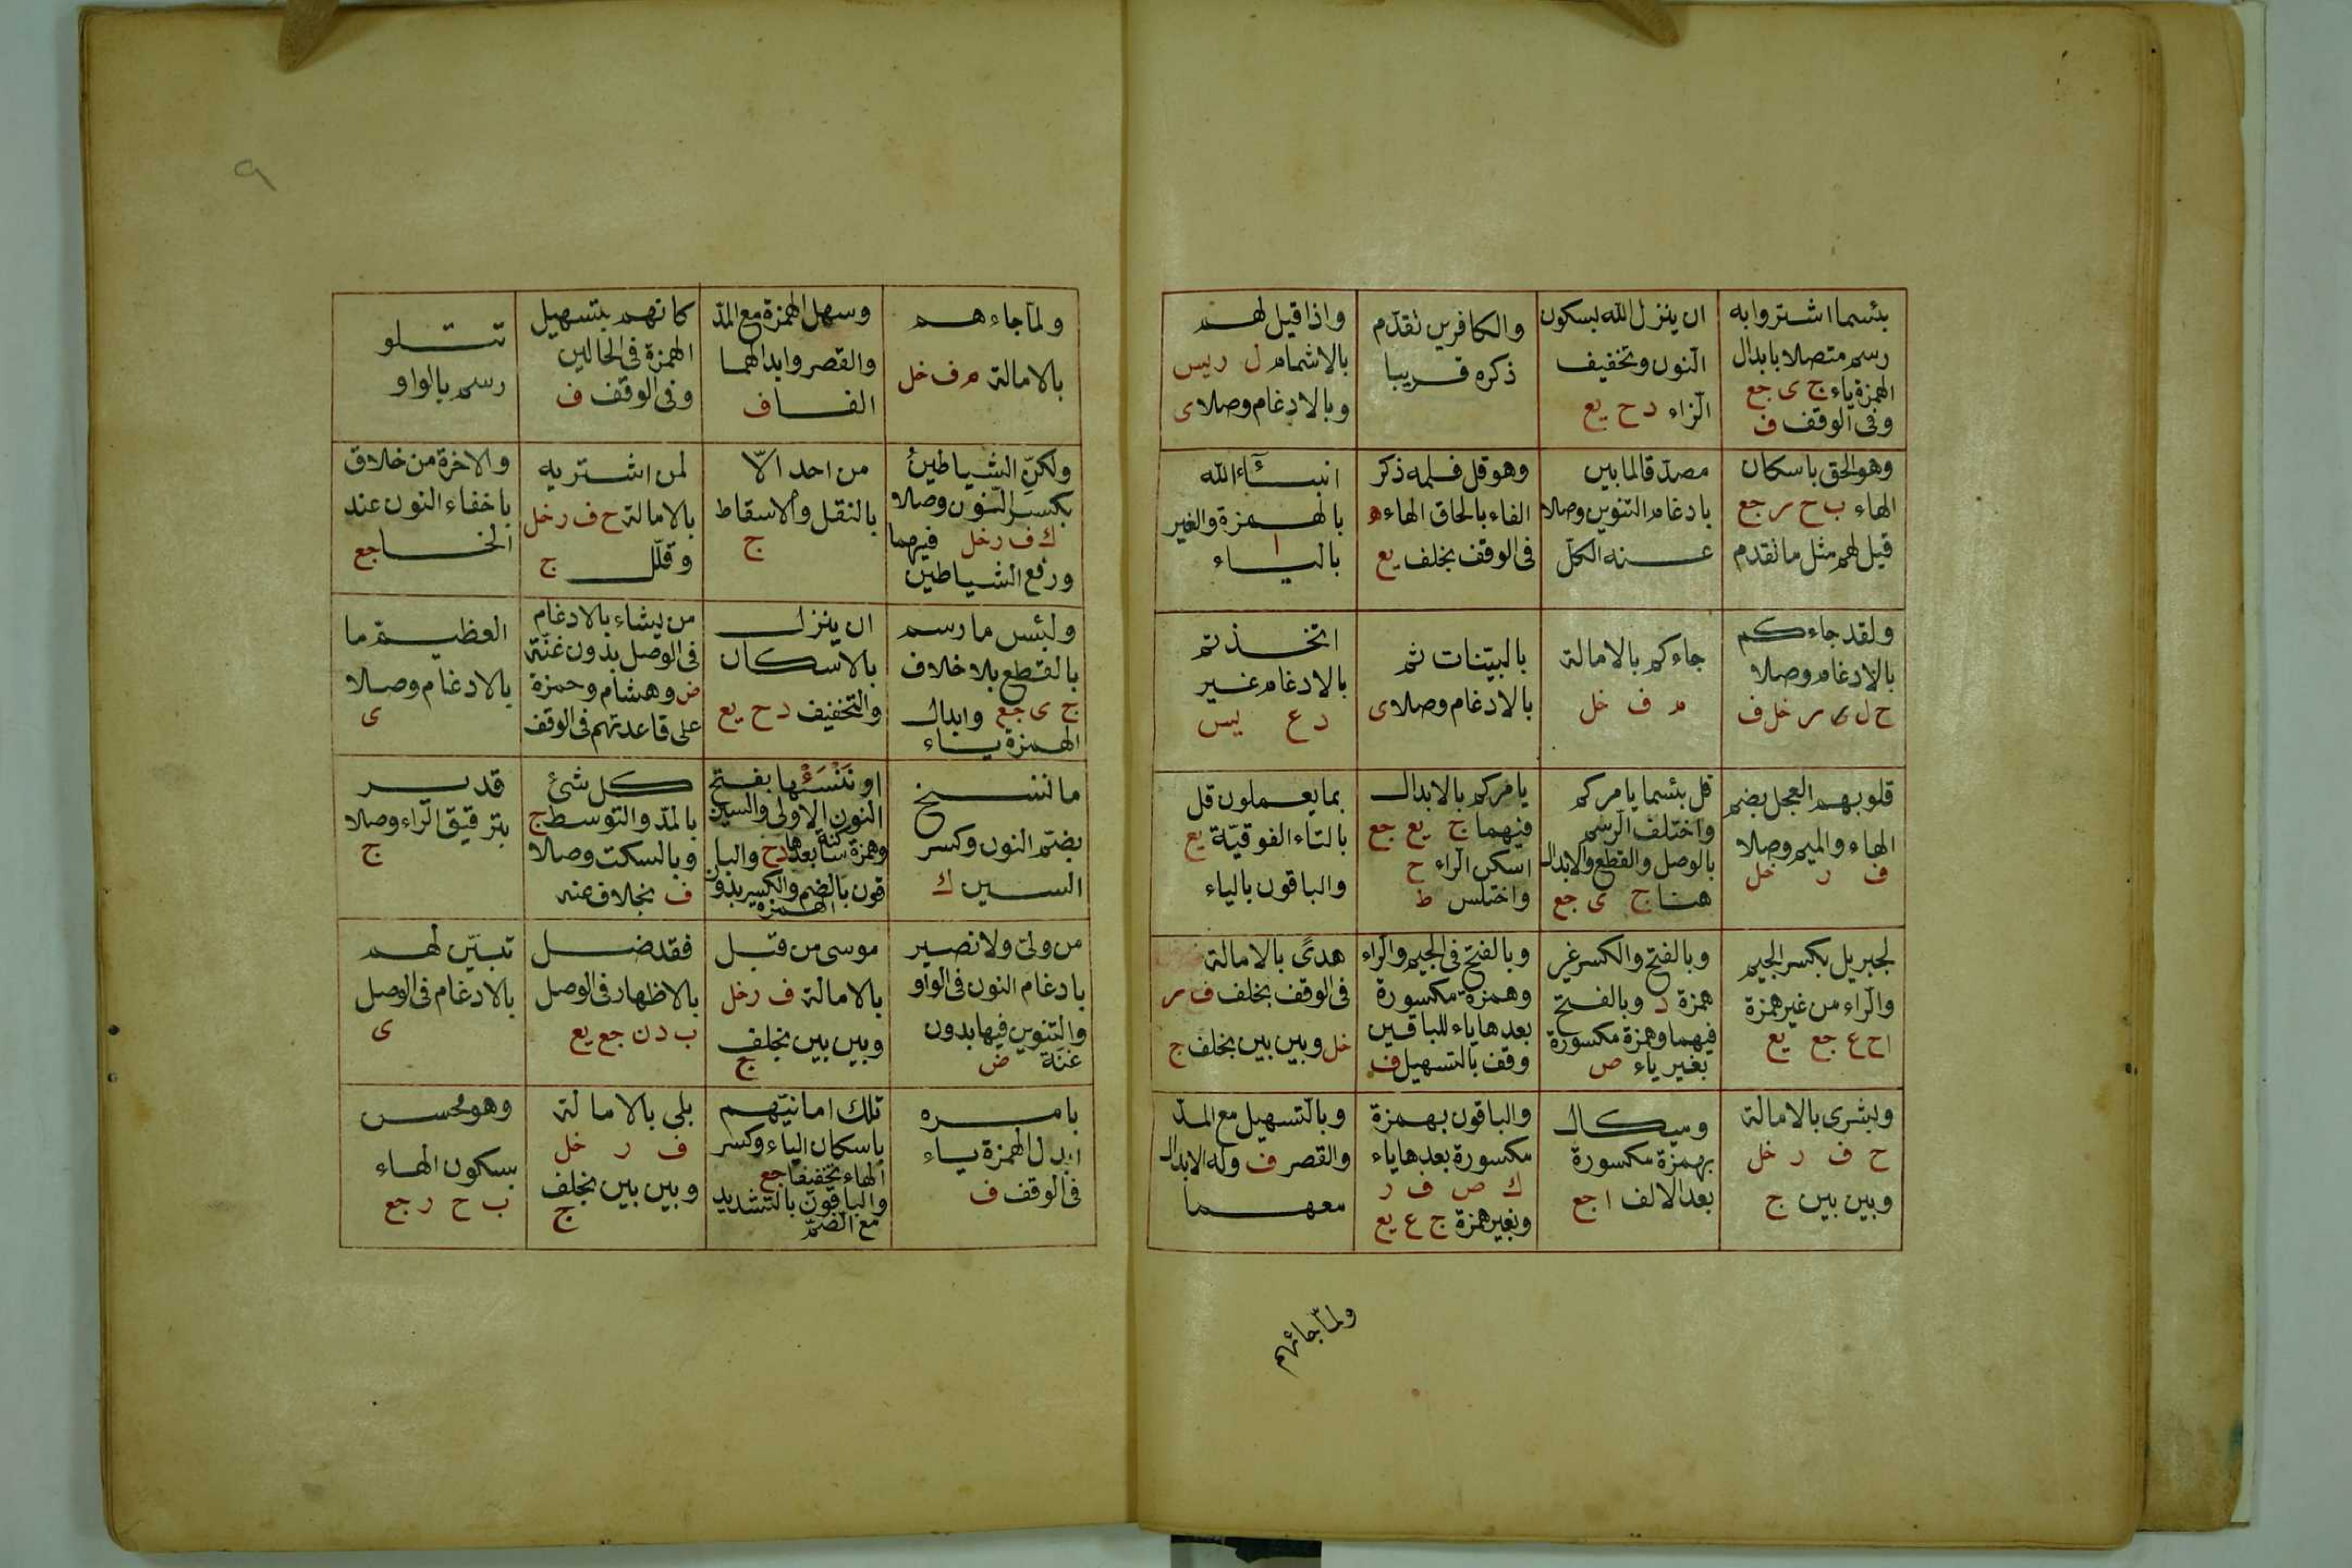 بئسما اشتروا به
رسم متصلا بابدال
الهمزة ياء ج ى جع
وفى الوقف ف
ان ينزل الله بسكون
النون وتخفيف
الزاء د ح يع
والكافرين تقدم
ذكره قريبا
واذا قيل لهم
بالاشمام ل ر يس
وبالادغام وصلا ى
وهو الحق باسكان
الهاء ب ح ر جع
قيل لهم مثل ما تقدم
مصدقا لما بين
بادغام التنوين وصلا
عنه الكل
وهو قل فلمه ذكر
الفاء بالحاق الهاء ه
فى الوقف بخلف يع
انبئاء الله
بالهمزة والغير
ا
بالياء
ولقد جاءكم
بالادغام وصلا
ح ل ر خل ف
جاءكم بالامالة
م ف خل
بالبينات ثم
بالادغام وصلا ى
اتخذتم
بالادغام غير
د ع يس
قلوبهم العجل بضم
الهاء والميم وصلا
ف ر خل
قل بئسما يامركم
واختلف الرسم
بالوصل والقطع والابدال
هنا ج ى جع
يامركم بالابدال
فيهما ج يع جع
اسكن الراء ح
واختلس ط
بما يعملون قل
بالتاء الفوقية يع
والباقون بالياء
لجبريل بكسر الجيم
والراء من غير همزة
ا ح ع جع يع
وبالفتح والكسر غير
همزة د وبالفتح
فيهما وهمزة مكسورة
بغير ياء ص
وبالفتح فى الجيم والراء
وهمزة مكسورة
بعدها ياء للباقين
وقف بالتسهيل ف
هدى بالامالة
فى الوقف بخلف ف ر
خل وبين بين بخلف ج
وبشرى بالامالة
ح ف ر خل
وبين بين ج
وميكال
بهمزة مكسورة
بعد الالف ا جع
والباقون بهمزة
مكسورة بعدها ياء
ك ص ف ر
وبغير همزة ج ع يع
وبالتسهيل مع المد
والقصر ف وله الابدال
معهما
ولما جائهم
٩
ولما جاءهم
بالامالة م ف خل
وسهل الهمزة مع المد
والقصر وابدالهما
الفا ف
كانهم بتسهيل
الهمزة فى الحالين
وفى الوقف ف
تتلو
رسم بالواو
ولكن الشياطين
بكسر النون وصلا
ك ف ر خل فيهما
ورفع الشياطين
من احد الا
بالنقل والاسقاط
ج
لمن اشتريه
بالامالة ح ف ر خل
وقلل ج
والاخرة من خلاق
باخفاء النون عند
الخا جع
ولبئس ما رسم
بالقطع بلا خلاف
ج ى جع وابدال
الهمزة ياء
ان ينزل
بالاسكان
والتخفيف د ح يع
من يشاء بالادغام
فى الوصل بدون غنة
ض وهشام وحمزة
على قاعدتهم فى الوقف
العظيم ما
بالادغام وصلا
ى
ما ننسخ
بضم النون وكسر
السين ك
او ننسئها بفتح
النون الاولى والسين
وهمزة ساكنة بعدها د ح والبا
قون بالضم والكسر بدون
الهمزة
كل شئ
بالمد والتوسط ج
وبالسكت وصلا
ف بخلاف عنه
قدير
بترقيق الراء وصلا
ج
من ولى ولا نصير
بادغام النون فى الواو
والتنوين فيها بدون
غنة ض
موسى من قبل
بالامالة ف ر خل
وبين بين بخلف
ج
فقد ضل
بالاظهار فى الوصل
ب د ن جع يع
تبين لهم
بالادغام فى الوصل
ى
بامره
ابدل الهمزة ياء
فى الوقف ف
تلك امانيهم
باسكان الياء وكسر
الهاء تخفيفا جع
والباقون بالتشديد
مع الضم
بلى بالامالة
ف ر خل
وبين بين بخلف
ج
وهو محسن
بسكون الهاء
ب ح ر جع